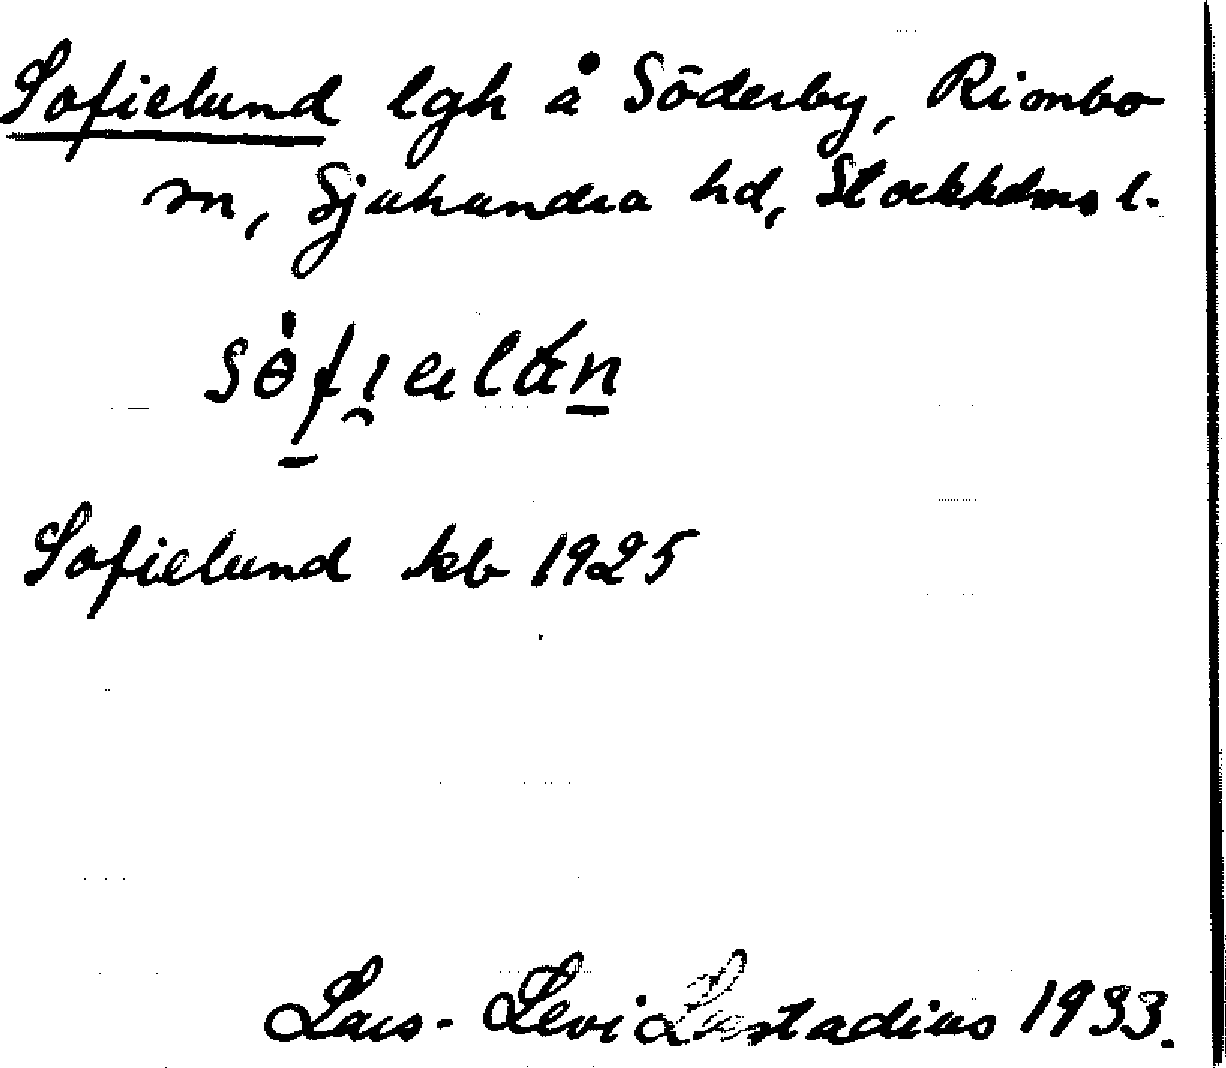 Sofielund lgh å Söderby, Rimbo
sn, Sjuhundra hd, Stockholms l.
Sofielund kb 1925
Lars-Levi Læstadius 1933.